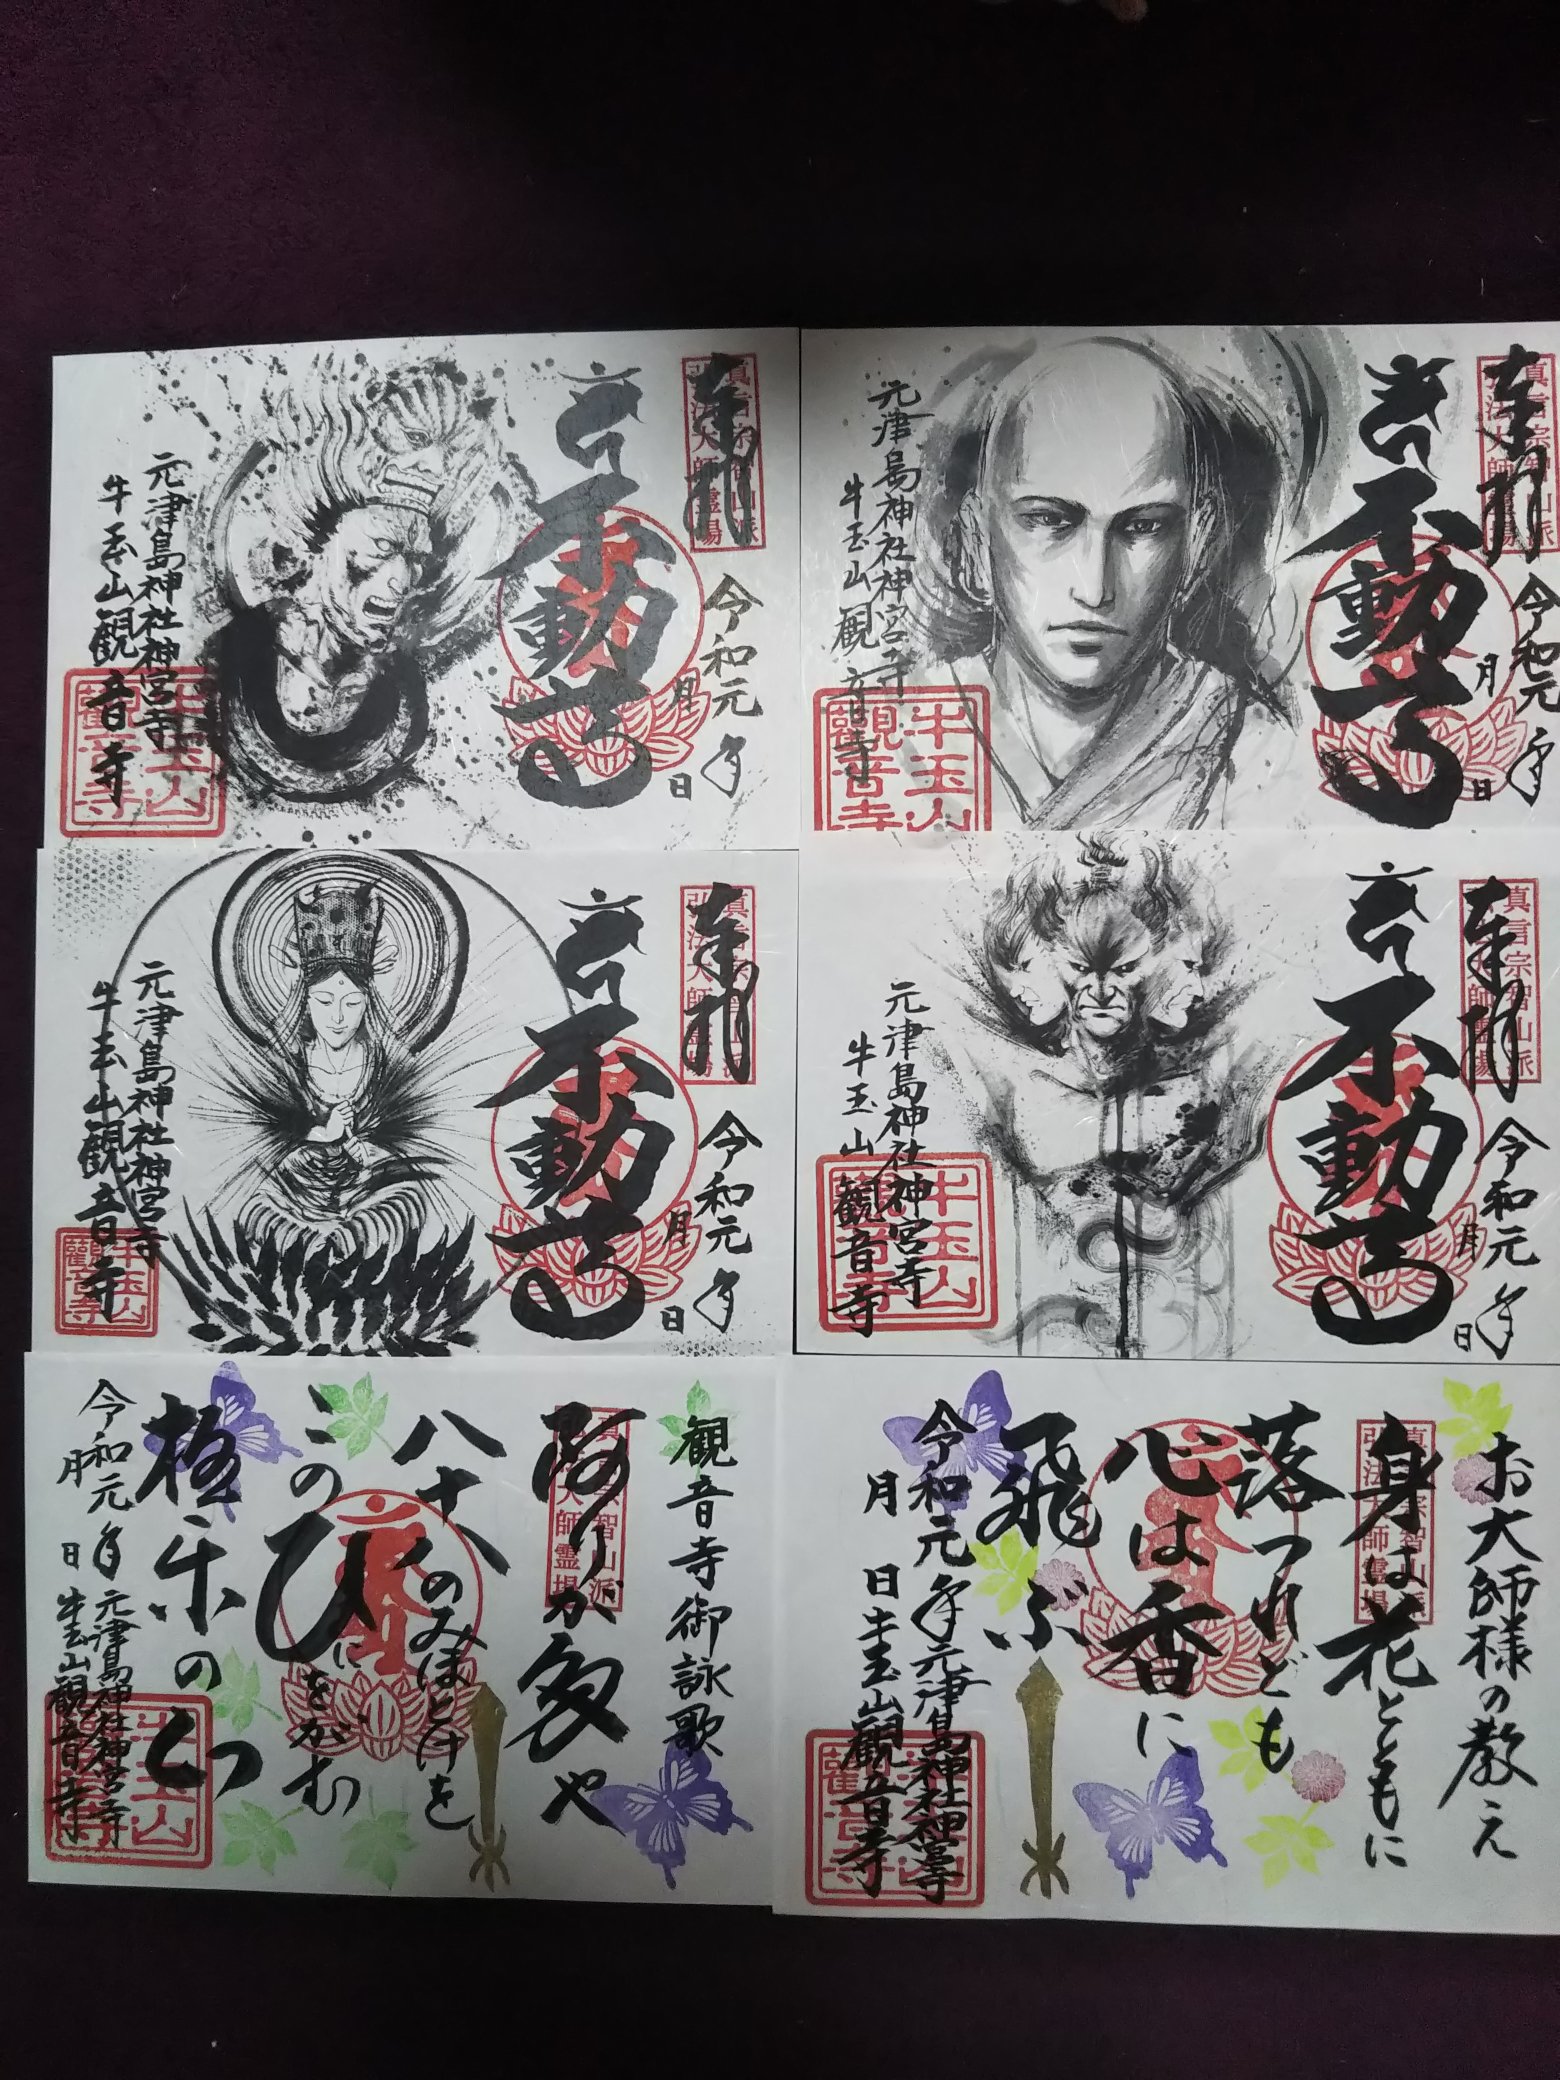 奉拝
真言宗智山派
弘法大師霊場
令和元年
月
日
不動尊
元津島神社神宮寺
牛玉山観音寺
牛玉山
觀音寺
奉拝
真言宗智山派
弘法大師霊場
令和元年
月
日
不動尊
元津島神社神宮寺
牛玉山観音寺
牛玉山
觀音寺
奉拝
真言宗智山派
弘法大師霊場
令和元年
月
日
不動尊
元津島神社神宮寺
牛玉山観音寺
牛玉山
觀音寺
奉拝
真言宗智山派
弘法大師霊場
令和元年
月
日
不動尊
元津島神社神宮寺
牛玉山観音寺
牛玉山
觀音寺
観音寺御詠歌
阿りが多や
八十八のみほとけを
この
にをがむ
極楽の
真言宗智山派
弘法大師霊場
令和元年
月
日
元津島神社神宮寺
牛玉山観音寺
牛玉山
觀音寺
お大師様の教え
身は花とともに
落つれども
心は香に
飛ぶ
真言宗智山派
弘法大師霊場
令和元年
月
日
元津島神社神宮寺
牛玉山観音寺
牛玉山
觀音寺